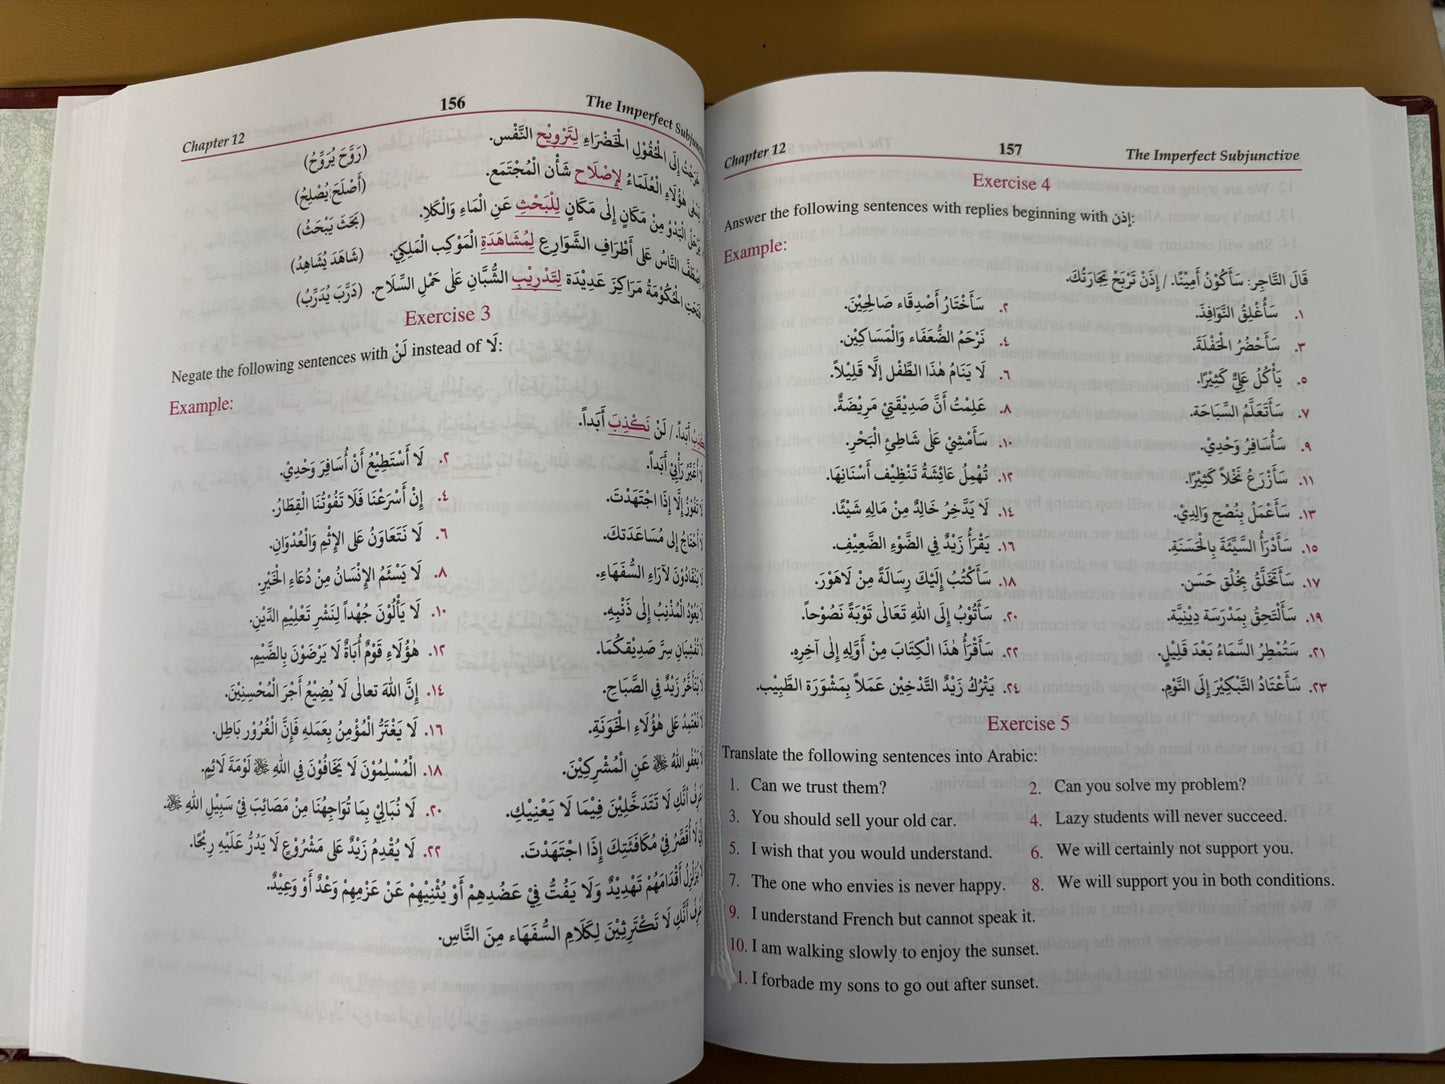 Chapter 12 156 The Imperfect Subjunctive
إِلَى الْحُقُوْلِ الْخَضْرَاءِ لِتَرْوِيْحِ النَّفْس. (رَوَّحَ يُرَوِّحُ)
هٰؤُلَاءِ الْعُلَمَاءُ لِإِصْلَاحِ شَأْنِ الْمُجْتَمَعِ. (أَصْلَحَ يُصْلِحُ)
الْبَدْوُ مِنْ مَكَانٍ إِلٰى مَكَانٍ لِلْبَحْثِ عَنِ الْمَاءِ وَالْكَلَإِ. (بَحَثَ يَبْحَثُ)
النَّاسُ عَلٰى أَطْرَافِ الشَّوَارِعِ لِمُشَاهَدَةِ الْمَوْكِبِ الْمَلَكِيِّ. (شَاهَدَ يُشَاهِدُ)
الْحُكُوْمَةُ مَرَاكِزَ عَدِيْدَةً لِتَدْرِيْبِ الشُّبَّانِ عَلٰى حَمْلِ السِّلَاحِ. (دَرَّبَ يُدَرِّبُ)
Exercise 3
Negate the following sentences with لَنْ instead of لَا:
Example:
أَبَداً. / لَنْ نَكْذِبَ أَبَداً.
رَأْيِيْ أَبَداً. ٢. لَا أَسْتَطِيْعُ أَنْ أُسَافِرَ وَحْدِيْ.
إِلَّا إِذَا اجْتَهَدْتَ. ٤. إِنْ أَسْرَعْنَا فَلَا تَفُوْتُنَا الْقِطَارُ.
إِلٰى مُسَاعَدَتِكَ. ٦. لَا نَتَعَاوَنُ عَلَى الْإِثْمِ وَالْعُدْوَانِ.
لِآرَاءِ السُّفَهَاءِ. ٨. لَا يَسْئَمُ الْإِنْسَانُ مِنْ دُعَاءِ الْخَيْرِ.
الْمُذْنِبُ إِلٰى ذَنْبِهِ. ١٠. لَا يَأْلُوْنَ جُهْداً لِنَشْرِ تَعْلِيْمِ الدِّيْنِ.
سِرَّ صَدِيْقِكُمَا. ١٢. هٰؤُلَاءِ قَوْمٌ أُبَاةٌ لَا يَرْضَوْنَ بِالضَّيْمِ.
زَيْدٌ فِي الصَّبَاحِ. ١٤. إِنَّ اللهَ تَعَالٰى لَا يُضِيْعُ أَجْرَ الْمُحْسِنِيْنَ.
عَلٰى هٰؤُلَاءِ الْخَوَنَةِ. ١٦. لَا يَغْتَرُّ الْمُؤْمِنُ بِعَمَلِهِ فَإِنَّ الْغُرُوْرَ بَاطِل.
اللهُ ﷻ عَنِ الْمُشْرِكِيْنَ. ١٨. الْمُسْلِمُوْنَ لَا يَخَافُوْنَ فِي اللهِ ﷻ لَوْمَةَ لَائِمٍ.
أَنَّكِ لَا تَتَدَخَّلِيْنَ فِيْمَا لَا يَعْنِيْكِ. ٢٠. لَا نُبَالِيْ بِمَا تُوَاجِهُنَا مِنْ مَصَائِبَ فِيْ سَبِيْلِ اللهِ ﷻ.
لَا أُقَصِّرُ فِيْ مُكَافَئَتِكَ إِذَا اجْتَهَدْتَ. ٢٢. لَا يُقْدِمُ زَيْدٌ عَلٰى مَشْرُوْعٍ لَا يَدُرُّ عَلَيْهِ رِبْحًا.
أَقْدَامَهُمْ تَهْدِيْدٌ وَلَا يَفُتُّ فِيْ عَضُدِهِمْ أَوْ يُثْنِيْهِمْ عَنْ عَزْمِهِمْ وَعْدٌ أَوْ وَعِيْدٌ.
أَنَّكِ لَا تَكْتَرِثِيْنَ لِكَلَامِ السُّفَهَاءِ مِنَ النَّاسِ.
Chapter 12 157 The Imperfect Subjunctive
Exercise 4
Answer the following sentences with replies beginning with إِذن:
Example:
قَالَ التَّاجِر: سَأَكُوْنُ أَمِيْنًا. / إِذَنْ تَرْبَحَ تِجَارَتُكَ.
١. سَأُغْلِقُ النَّوَافِذَ. ٢. سَأَخْتَارُ أَصْدِقَاءَ صَالِحِيْنَ.
٣. سَأَحْضُرُ الْحَفْلَةَ. ٤. نَرْحَمُ الضُّعَفَاءَ وَالْمَسَاكِيْنَ.
٥. يَأْكُلُ عَلِيٌّ كَثِيْرًا. ٦. لَا يَنَامُ هٰذَا الطِّفْلُ إِلَّا قَلِيْلاً.
٧. سَأَتَعَلَّمُ السِّبَاحَةَ. ٨. عَلِمْتُ أَنَّ صَدِيْقَتِيْ مَرِيْضَةٌ.
٩. سَأُسَافِرُ وَحْدِيْ. ١٠. سَأَمْشِيْ عَلٰى شَاطِئِ الْبَحْرِ.
١١. سَأَزْرَعُ نَخْلاً كَثِيْرًا. ١٢. تُهْمِلُ عَائِشَةُ تَنْظِيْفَ أَسْنَانِهَا.
١٣. سَأَعْمَلُ بِنُصْحِ وَالِدِيْ. ١٤. لَا يَدَّخِرُ خَالِدٌ مِنْ مَالِهِ شَيْئًا.
١٥. سَأَدْرَأُ السَّيِّئَةَ بِالْحَسَنَةِ. ١٦. يَقْرَأُ زَيْدٌ فِي الضَّوْءِ الضَّعِيْفِ.
١٧. سَأَتَخَلَّقُ بِخُلُقٍ حَسَنٍ. ١٨. سَأَكْتُبُ إِلَيْكَ رِسَالَةً مِنْ لَاهَوْرَ.
١٩. سَأَلْتَحِقُ بِمَدْرَسَةٍ دِيْنِيَّةٍ. ٢٠. سَأَتُوْبُ إِلَى اللهِ تَعَالٰى تَوْبَةً نَصُوْحاً.
٢١. سَتُمْطِرُ السَّمَاءُ بَعْدَ قَلِيْلٍ. ٢٢. سَأَقْرَأُ هٰذَا الْكِتَابَ مِنْ أَوَّلِهِ إِلٰى آخِرِهِ.
٢٣. سَأَعْتَادُ التَّبْكِيْرَ إِلَى النَّوْمِ. ٢٤. يَتْرُكُ زَيْدٌ التَّدْخِيْنَ عَمَلاً بِمَشْوَرَةِ الطَّبِيْبِ.
Exercise 5
Translate the following sentences into Arabic:
1. Can we trust them? 2. Can you solve my problem?
3. You should sell your old car. 4. Lazy students will never succeed.
5. I wish that you would understand. 6. We will certainly not support you.
7. The one who envies is never happy. 8. We will support you in both conditions.
9. I understand French but cannot speak it.
10. I am walking slowly to enjoy the sunset.
1. I forbade my sons to go out after sunset.